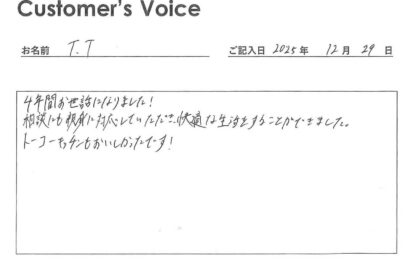 Customer's Voice
お名前 T.T ご記入日 2025 年 12 月 29 日
4年間お世話になりました!
相談にも親身に対応していただき、快適な生活をすることができました。
トーコーキッチンもおいしかったです!